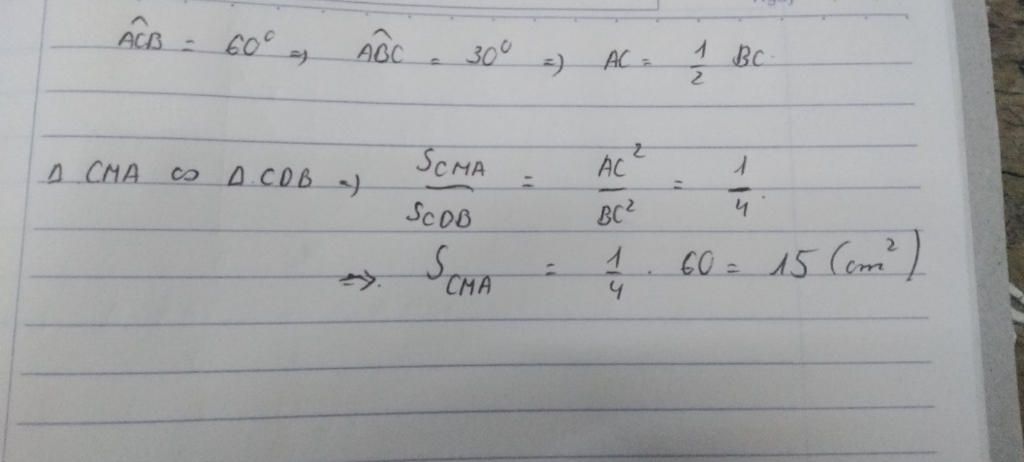 ACB = 60° => ABC = 30° => AC = 1/2 BC.
Δ CMA ∽ Δ.CDB => S_CMA / S_CDB = AC² / BC² = 1/4.
=>. S_CMA = 1/4 . 60 = 15 (cm²)